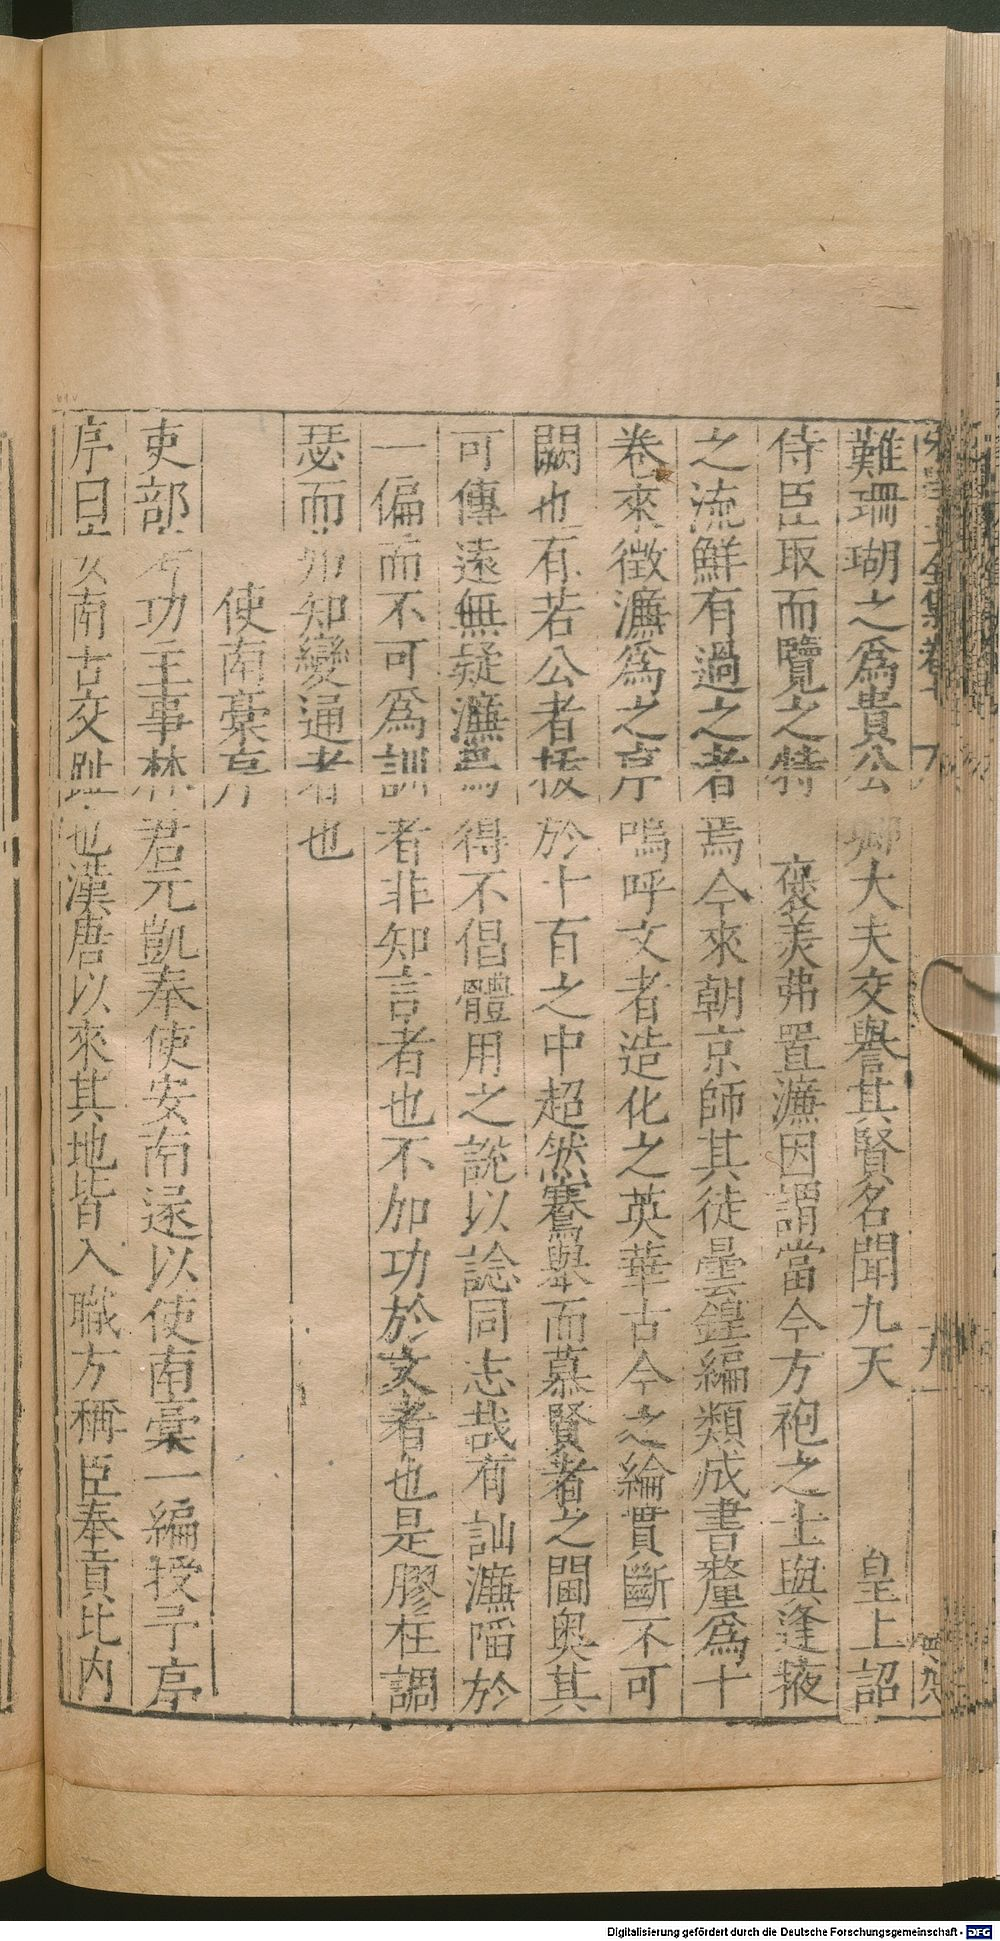 難珊瑚之爲貴公卿大夫交譽其賢名聞九天　皇上詔
侍臣取而覽之特　褒美弗置濂因謂當今方袍之士與逢掖
之流鮮有過之者焉今來朝京師其徒曇鍠編類成書釐爲十
卷來徵濂爲之序嗚呼文者造化之英華古今之綸貫斷不可
闕也有若公者拔於十百之中超然鶱舉而慕賢者之閫奥其
可傳遠無疑濂爲得不倡體用之說以諗同志哉有訕濂陷於
一偏而不可爲訓者非知言者也不加功於文者也是膠柱調
瑟而弗知變通者也
使南藁序
吏部考功主事林君元凱奉使安南遂以使南藁一編授予序
序曰安南古交趾也漢唐以來其地皆入職方稱臣奉貢比内
Digitalisierung gefördert durch die Deutsche Forschungsgemeinschaft - DFG